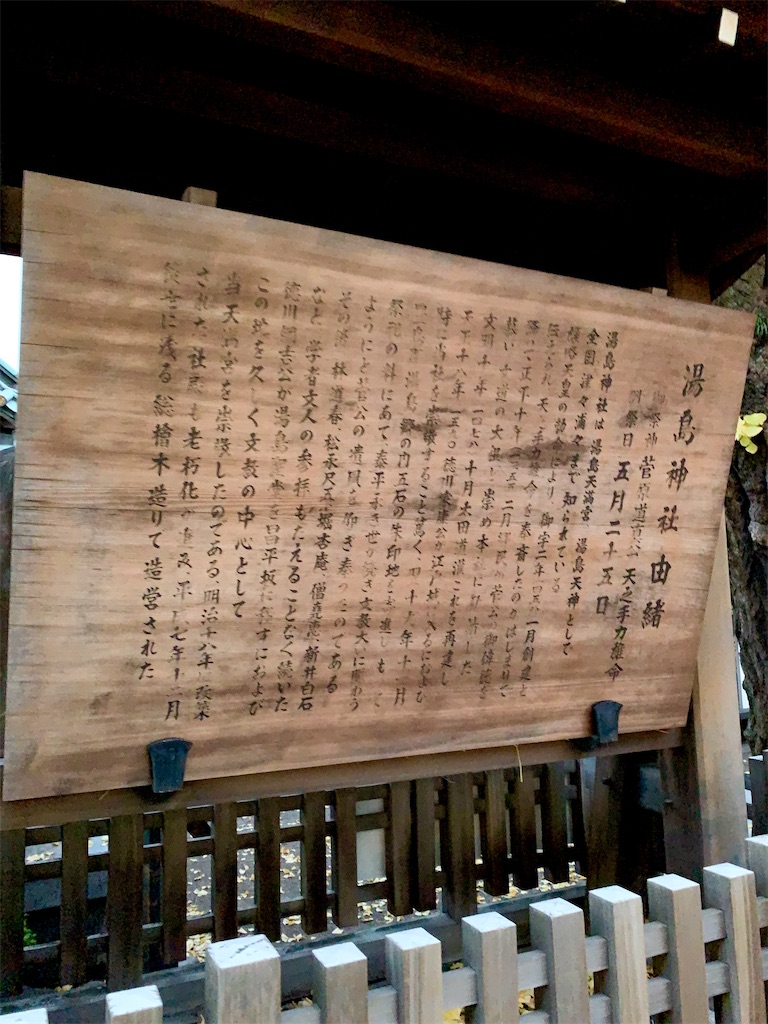 湯島神社由緒
御祭神 菅原道真公 天之手力雄命
例祭日 五月二十五日
湯島神社は湯島天満宮 湯島天神として
全国津々浦々まで知られている
雄略天皇の勅命により 御宇二年 一月創建と
伝えられ 天之手力雄命を奉斎したのがはじまりで
降って正平十年 二月 郷民が菅公の御偉徳を
慕い 文道の大祖と崇め本社に
文明十年 十月 太田道灌これを再建し
天正十八年 徳川家康公が江戸城に入るにおよび
特に当社を崇敬すること篤く 十九年十一月
湯島郷の内五石の朱印地を
祭祀の料にあて 泰平永き世が続き文教大いに賑わう
ようにと菅公の遺風を仰ぎ奉ったのである
その後 林道春 松永尺五 堀杏庵 僧堯恵 新井白石
など 学者文人の参拝もたえることなく続いた
徳川綱吉公が湯島聖堂を昌平坂に移すにおよび
この地を久しく文教の中心として
当天満宮を崇敬したのである 明治十八年に改築
された社殿も老朽化が進み 平成七年十二月
後世に残る総檜木造りで造営された